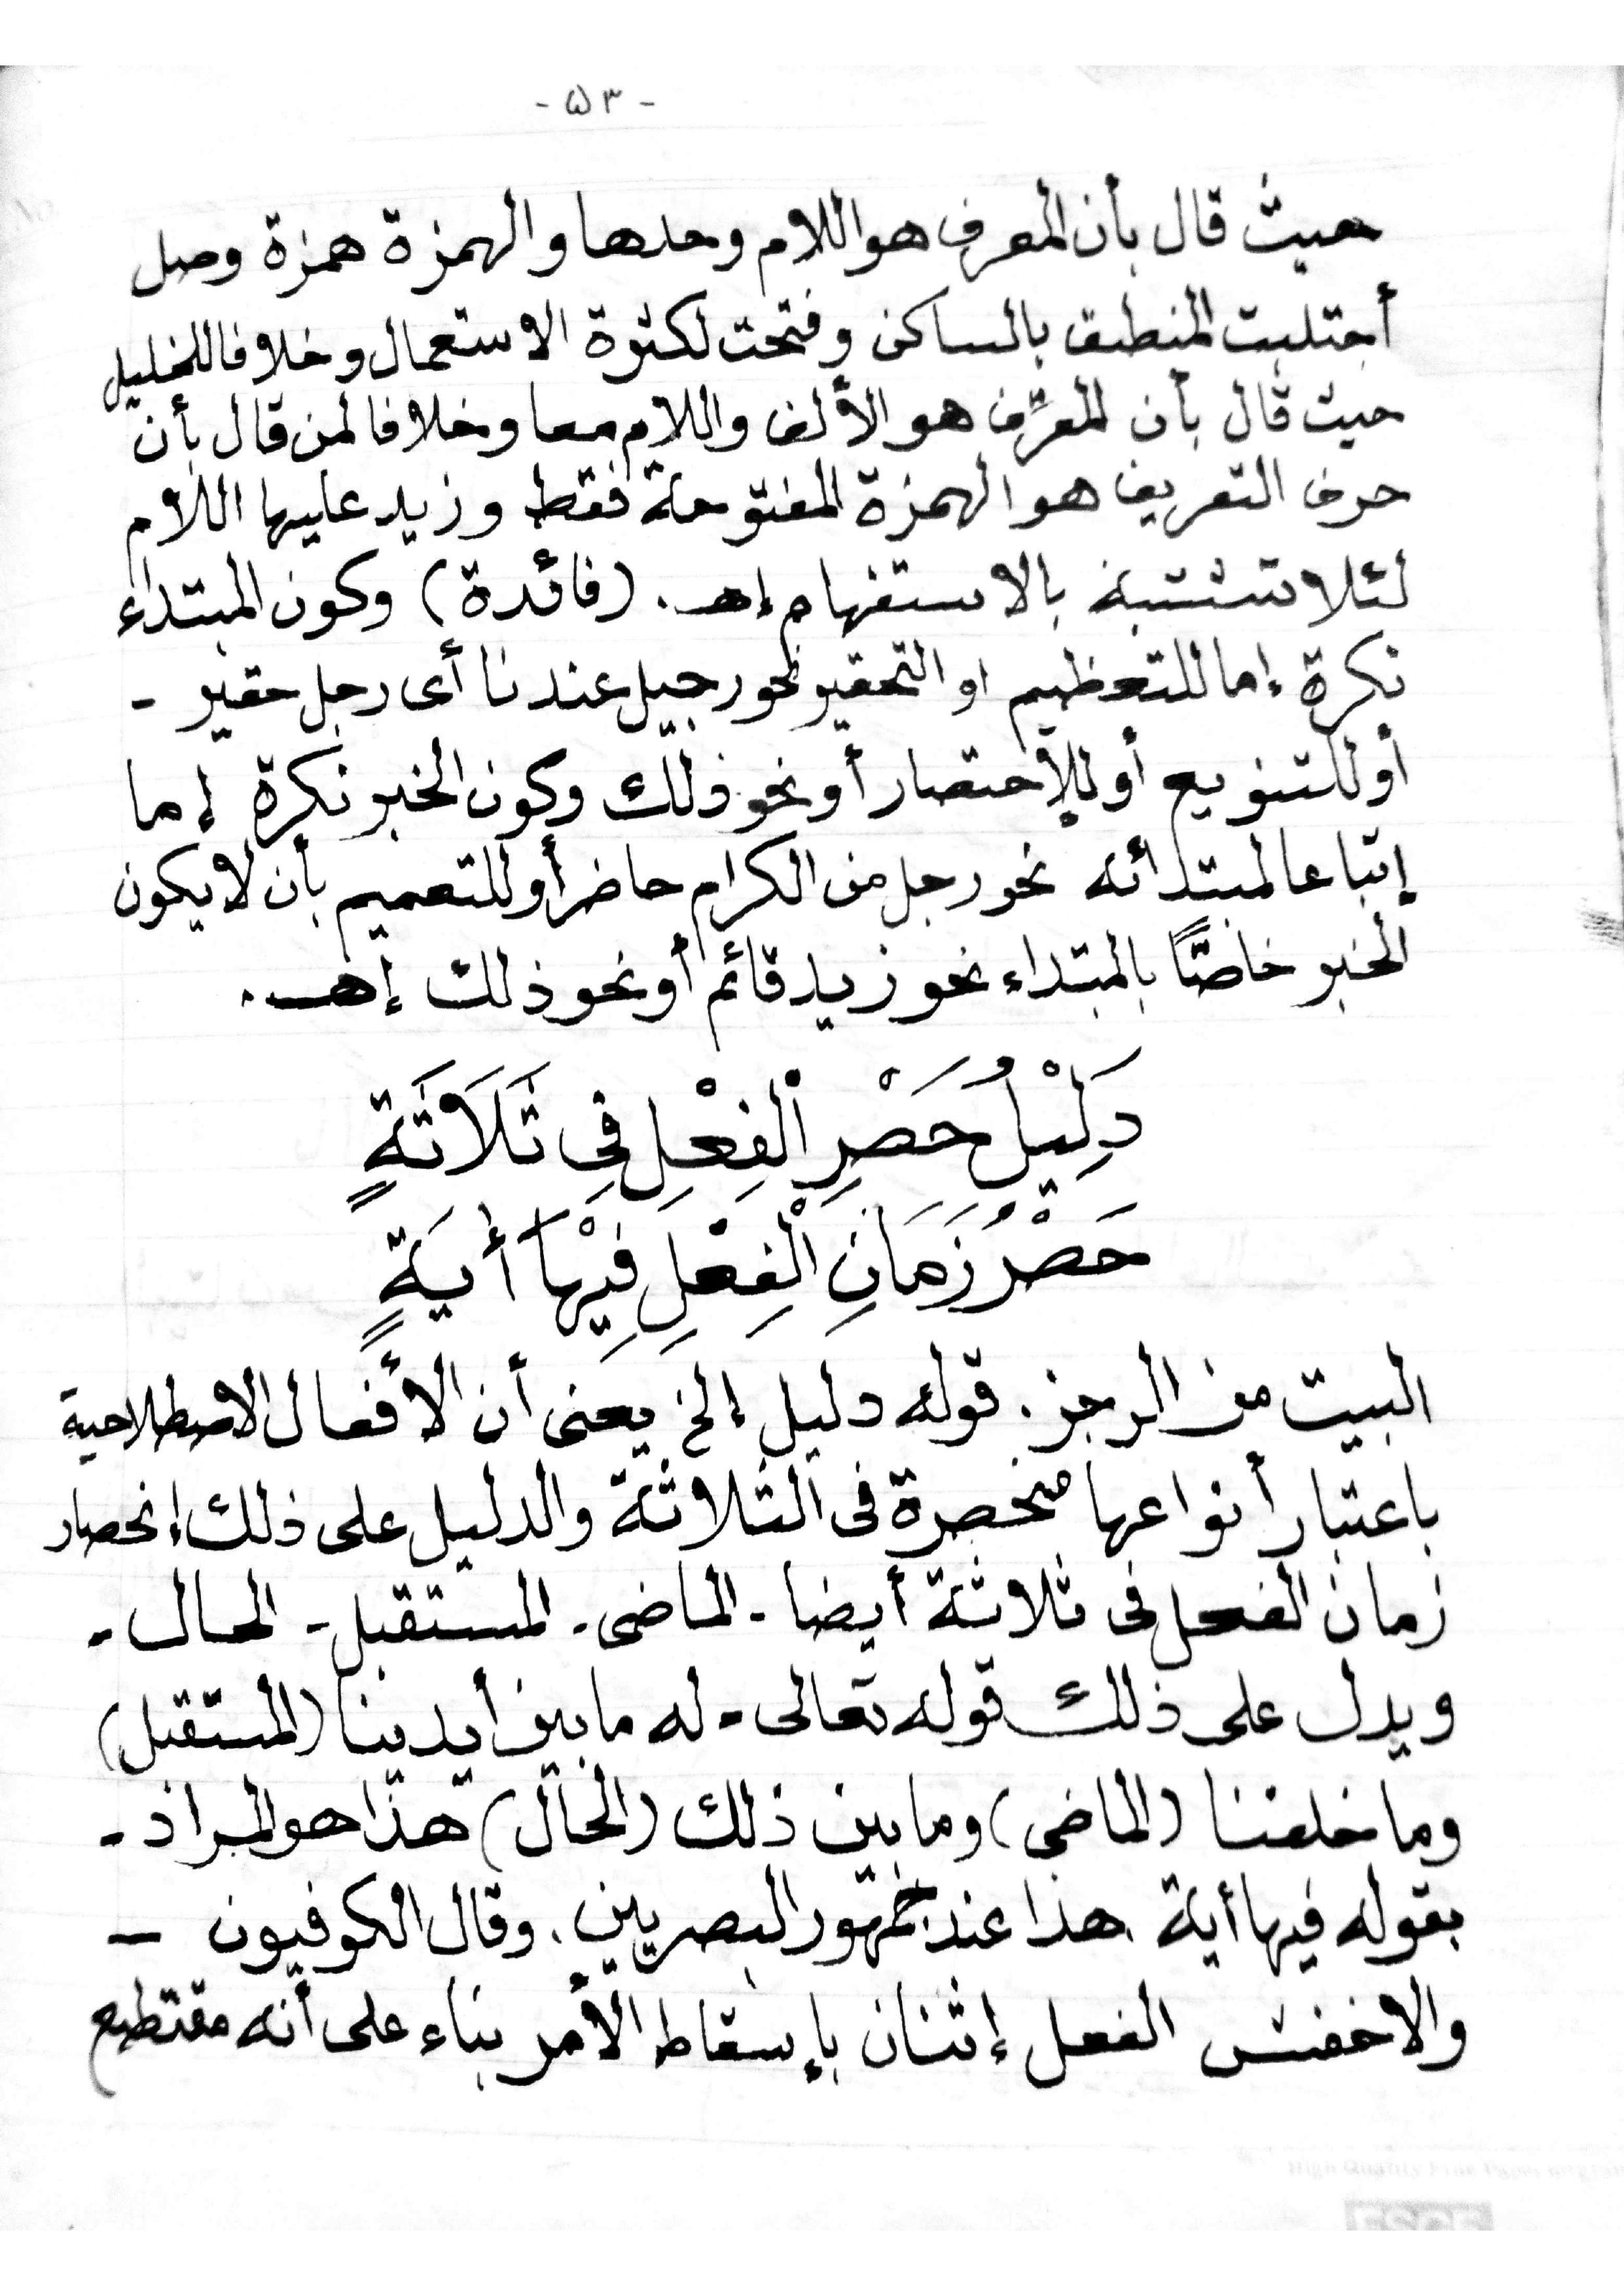 - ٥٣ -
حيث قال بأن المعرف هو اللام وحدها والهمزة همزة وصل
أجتلبت المنطق بالساكن وفتحت لكثرة الاستعمال وخلافا للخليل
حيث قال بأن المعرِّف هو الألف واللام معا وخلافا لمن قال بأن
حرف التعريف هو الهمزة المفتوحة فقط وزيد عليها اللام
لئلا تشتبه بالاستفهام إهـ. (فائدة) وكون المبتداء
نكرة إما للتعظيم او التحقير نحو رجيل عندنا أى رجل حقير -
أو للتنويع أو للإختصار أو نحو ذلك وكون الخبر نكرة إما
إتباعا لمبتدائه نحو رجل من الكرام حاضر أو للتعميم بأن لا يكون
الخبر خاصًّا بالمبتداء نحو زيد قائم أو نحو ذلك إهـ.
دَلِيْلُ حَصْرِ الْفِعْلِ فِى ثَلَاثَةٍ
حَصْرُ زَمَانِ الْفِعْلِ فِيْهَا أيَةٍ
البيت من الرجز. قوله دليل إلخ يعنى أن الأفعال الاصطلاحية
باعتبار أنواعها منحصرة فى الثلاثة والدليل على ذلك إنحصار
زمان الفعل فى ثلاثة أيضا - الماضى - المستقبل - الحال -
ويدل على ذلك قوله تعالى - له ما بين أيدينا (المستقبل)
وما خلفنا (الماضى) وما بين ذلك (الحال) هذا هو المراد -
بقوله فيها أية هذا عند جمهور البصريين. وقال الكوفيون -
والاخفش الفعل إثنان بإسقاط الأمر بناء على أنه مقتطع